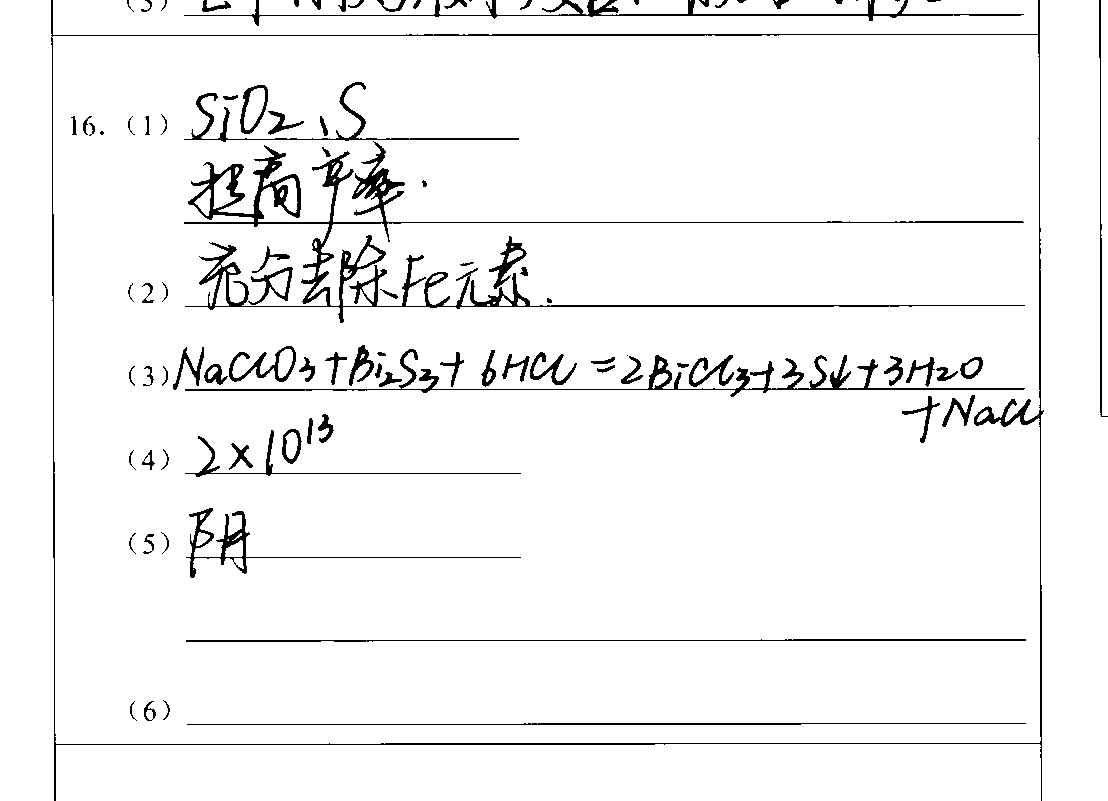 (3)
16. (1) SiO₂、S
提高产率.
(2) 充分去除Fe元素.
(3) NaClO₃+Bi₂S₃+6HCl=2BiCl₃+3S↓+3H₂O
+NaCl
(4) 2×10¹³
(5) 阴
(6)